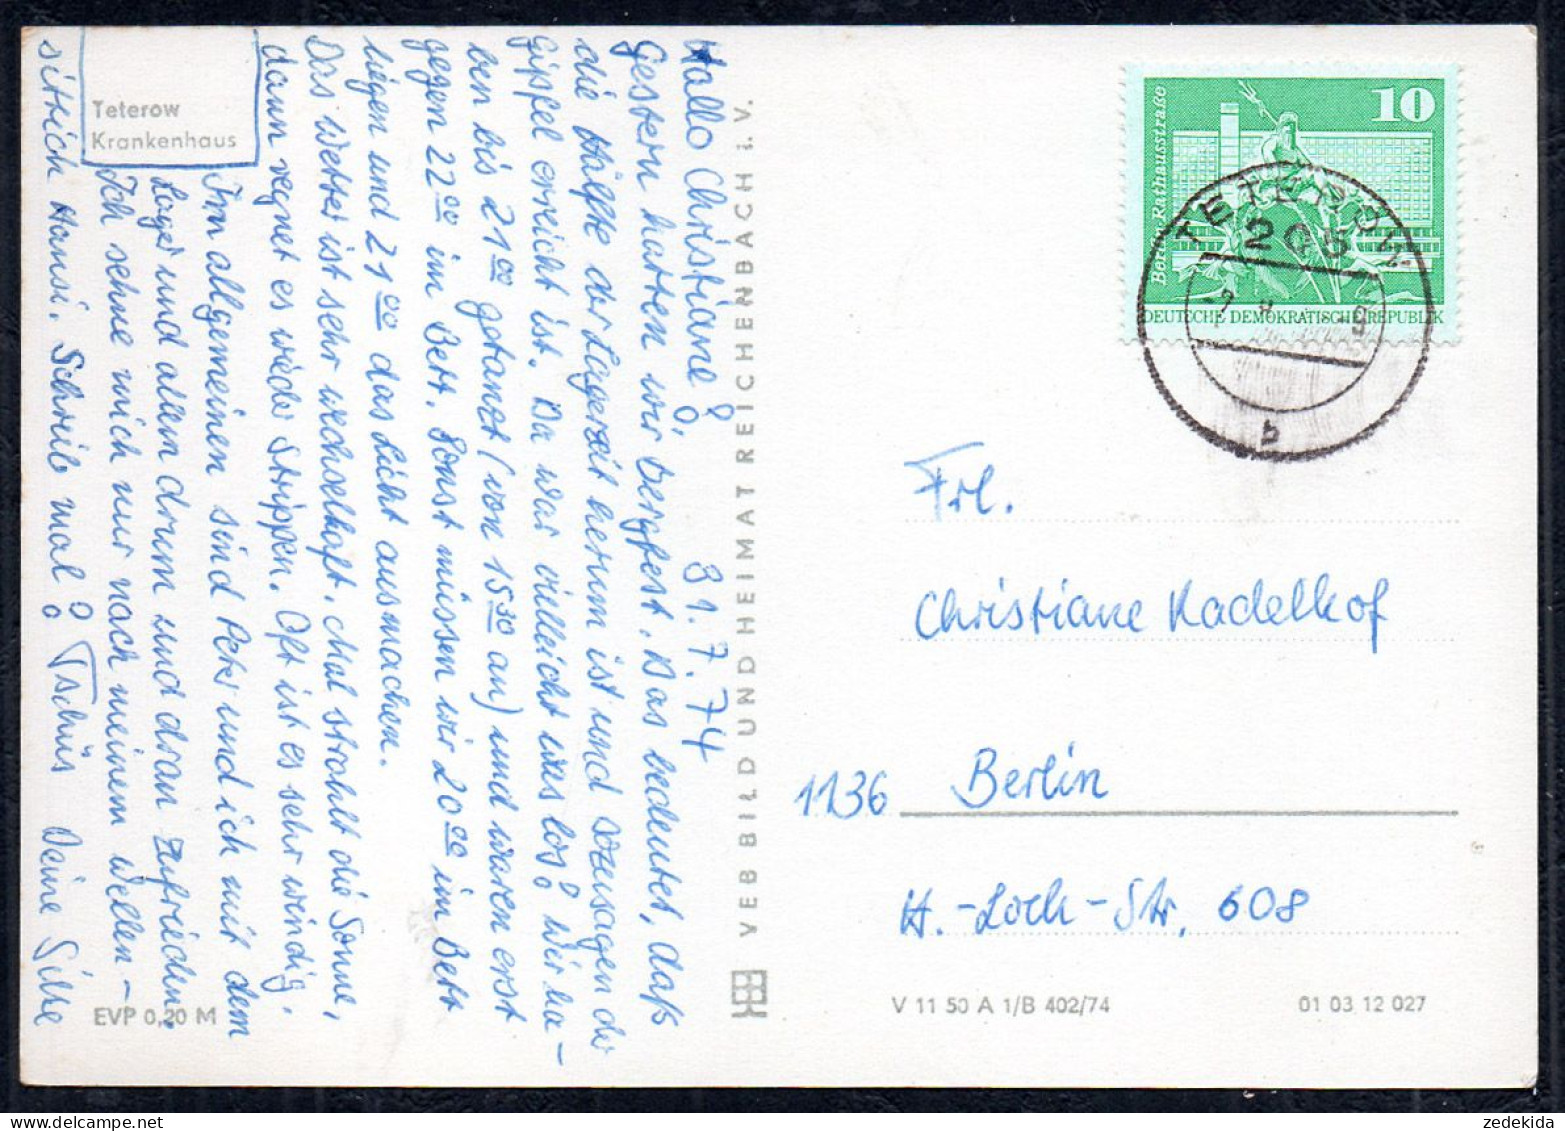 Hallo Christiane! 31.7.74
Gestern hatten wir Bergfest. Das bedeutet, daß
die Hälfte der Lagerzeit herum ist und sozusagen der
Gipfel erreicht ist. Da war vielleicht was los! Wir ha-
ben bis 21 00 getanzt (von 15 30 an) und waren erst
gegen 22 00 im Bett. Sonst müssen wir 20 00 im Bett
liegen und 21 00 das Licht ausmachen.
Das Wetter ist sehr wechselhaft. Mal strahlt die Sonne,
dann regnet es wieder Strippen. Oft ist es sehr windig.
Im allgemeinen sind Petr und ich mit dem
Lager und allem drum und dran zufrieden.
Ich sehne mich nur nach meinem Wellen-
sittich Hansi. Schreib mal! Tschüs Deine Silke
Teterow
Krankenhaus
EVP 0,20 M
VEB BILD UND HEIMAT REICHENBACH I. V.
10
Rathausstraße
DEUTSCHE DEMOKRATISCHE REPUBLIK
TETEROW
205
b
Frl.
Christiane Kadelhof
1136 Berlin
H.-Loch-Str. 608
V 11 50 A 1/B 402/74
01 03 12 027
zedekida